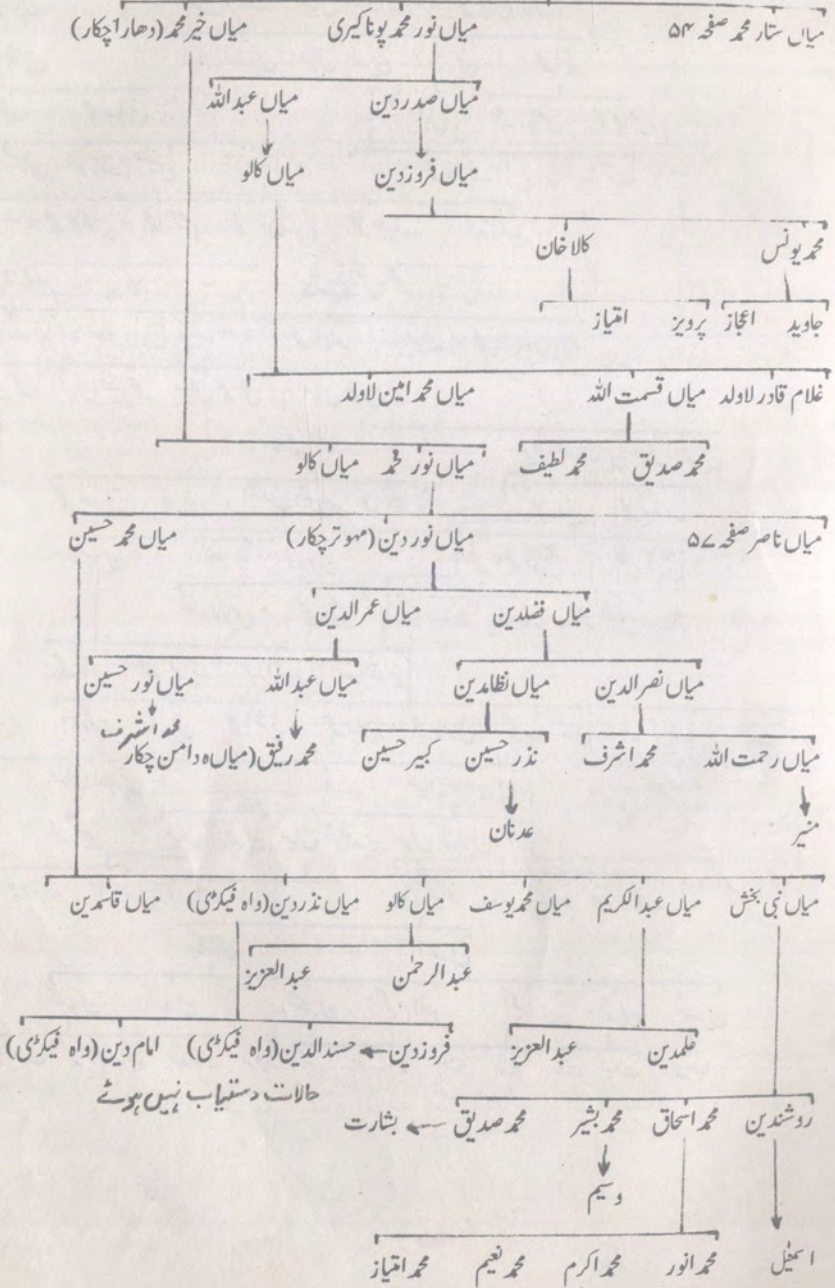 میاں ستار محمد صفحہ ۵۴ میاں نور محمد پوناکیری میاں خیر محمد (دھارا چکار)
میاں صدردین میاں عبداللہ
میاں فروزدین میاں کالو
محمد یونس کالاخان
جاوید اعجاز پرویز امتیاز
غلام قادر لاولد میاں قسمت اللہ میاں محمد امین لاولد
محمد صدیق محمد لطیف میاں نور محمد میاں کالو
میاں ناصر صفحہ ۵۷ میاں نوردین (مہوتر چکار) میاں محمد حسین
میاں فضلدین میاں عمرالدین
میاں نصرالدین میاں نظامدین میاں عبداللہ میاں نور حسین
میاں رحمت اللہ محمد اشرف نذر حسین کبیر حسین محمد رفیق (میاں دامن چکار محمد اشرف
منیر عدنان
میاں نبی بخش میاں عبدالکریم میاں محمد یوسف میاں کالو میاں نذردین (واہ فیکڑی) میاں قاسمدین
عبدالرحمٰن عبدالعزیز
علمدین عبدالعزیز فروزدین ← حسندالدین (واہ فیکڑی) امام دین (واہ فیکڑی)
حالات دستیاب نہیں ہوئے
روشندین محمد اسحاق محمد بشیر محمد صدیق ← بشارت
وسیم
اسمٰعیل محمد انور محمد اکرم محمد نعیم محمد امتیاز